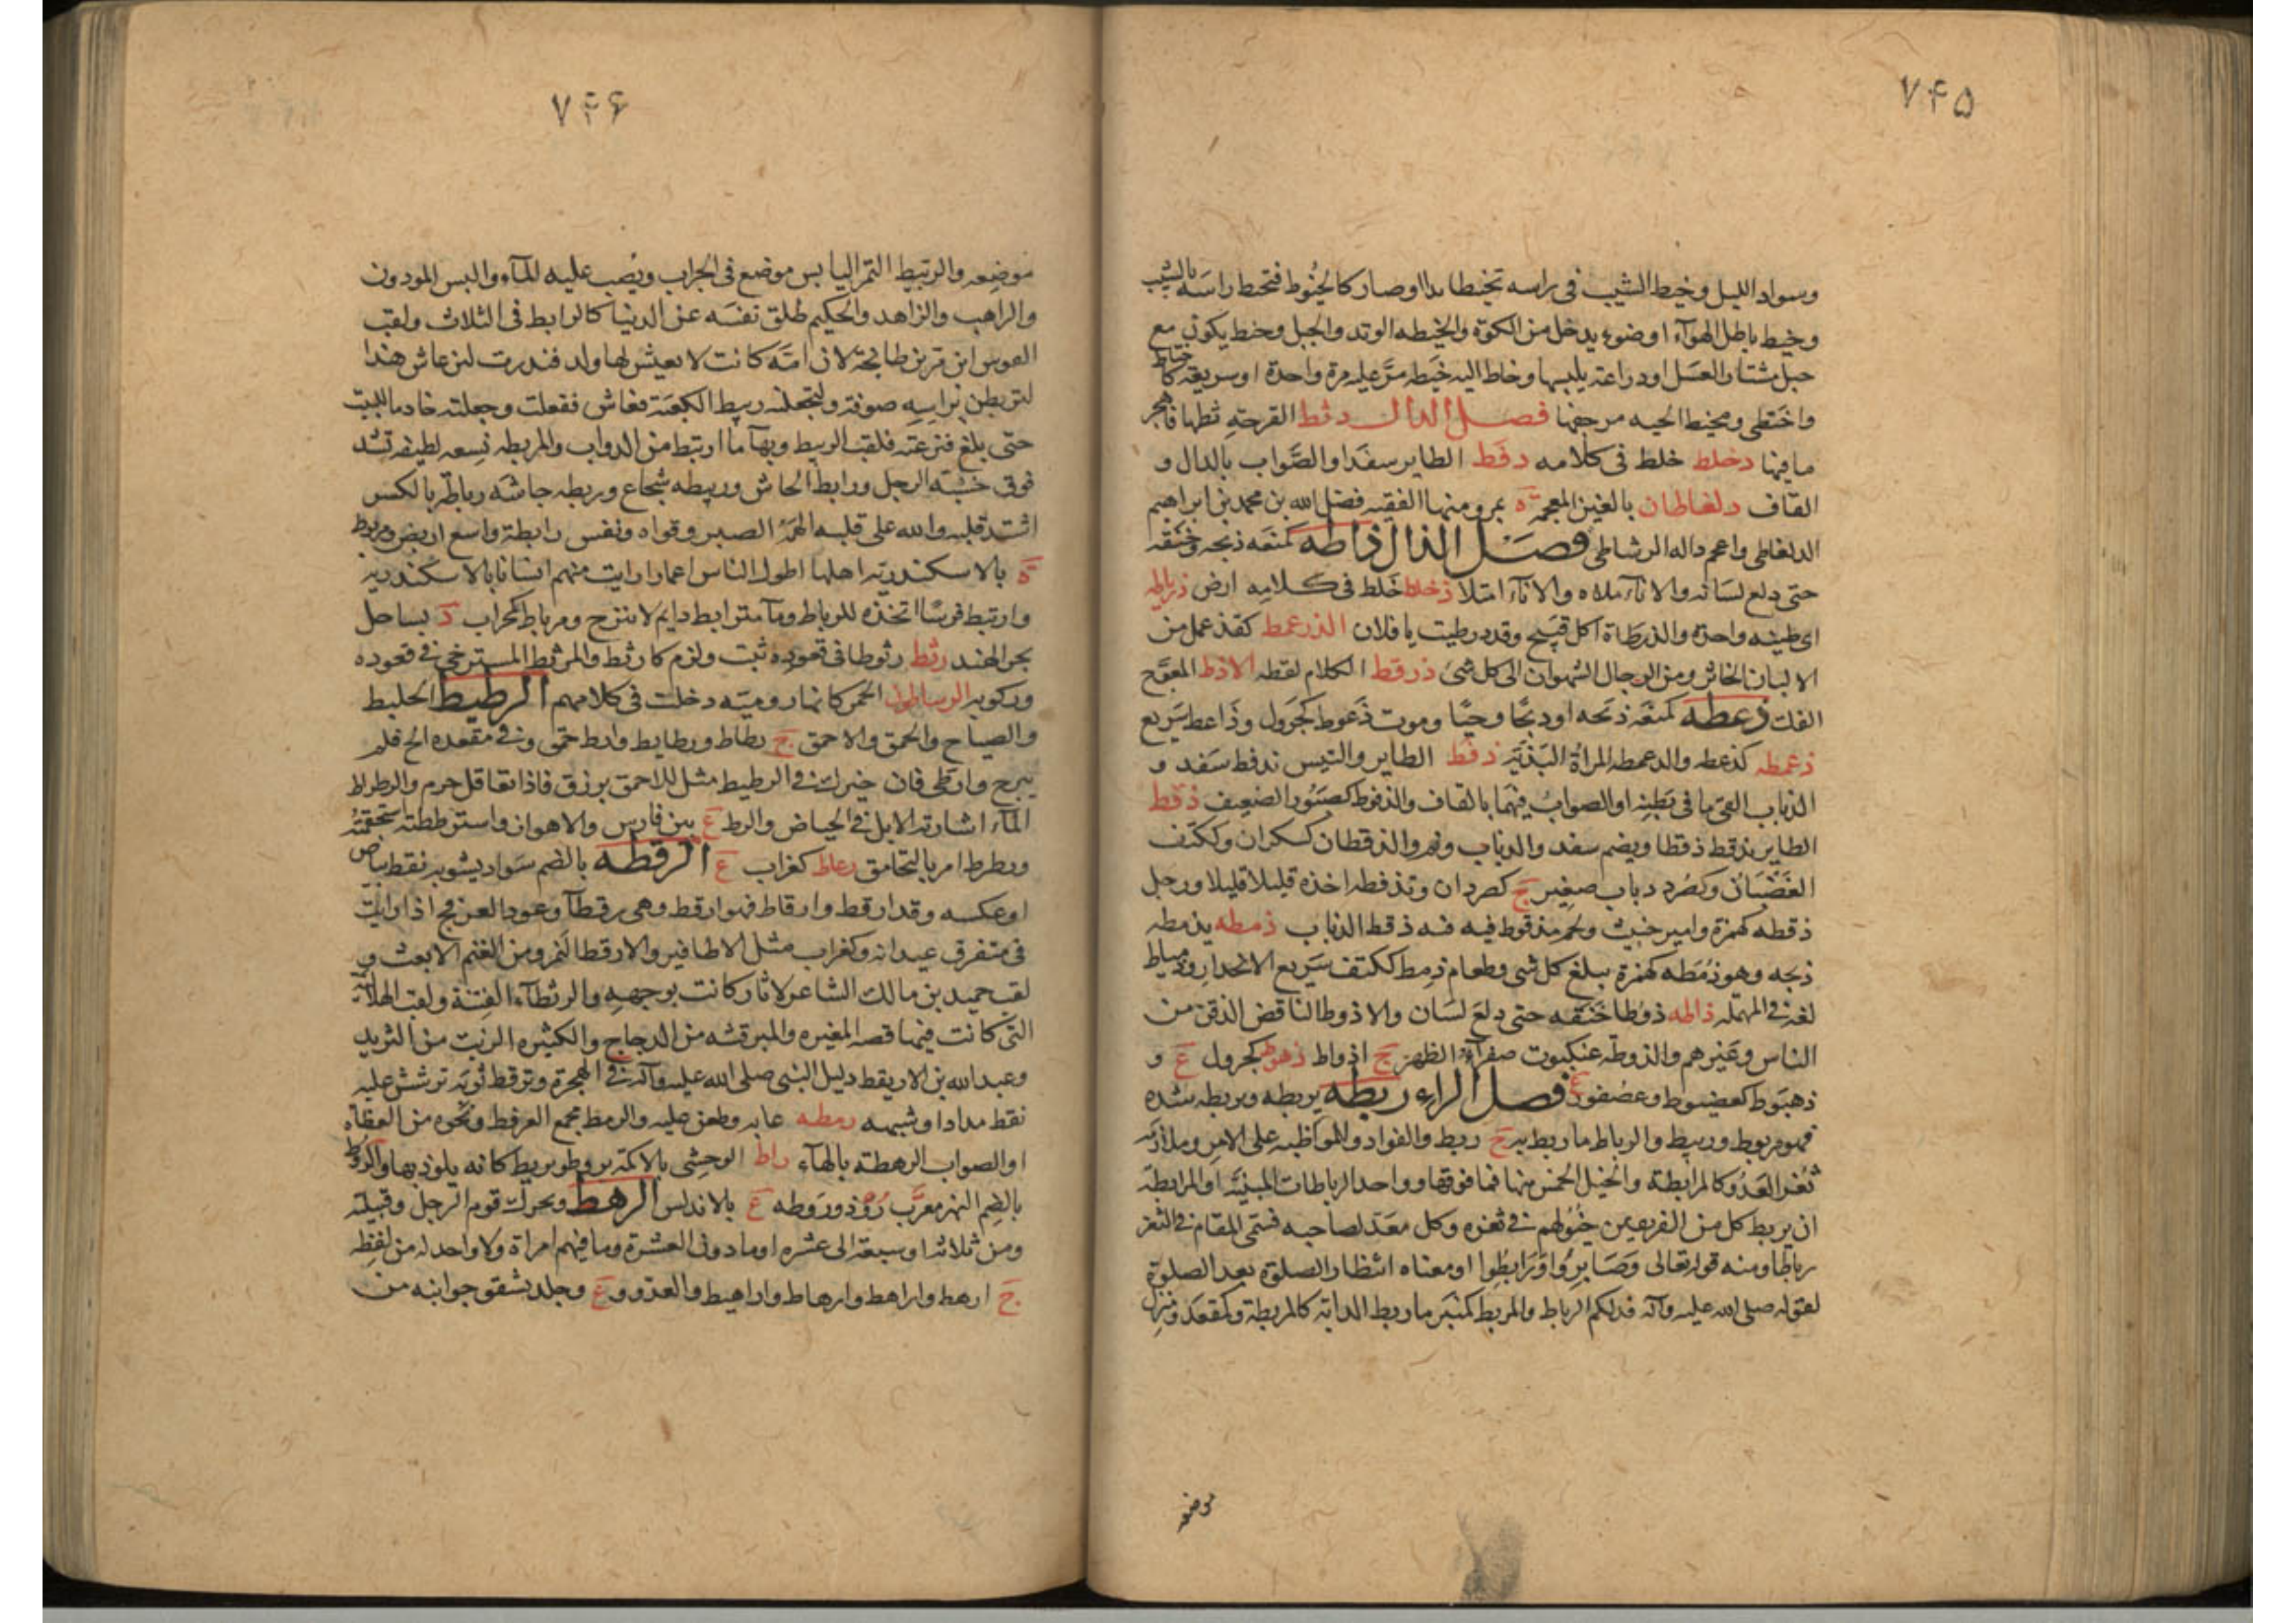 ۷۴۵
وسواد الليل وخيط الشيب فى راسه تخيطا بدا او صار كالخُيُوط فتخيط راسَه بالشيب
وخيط باطل الهوآء او ضوء يدخل من الكوّة والخيطه الوتد والحبل وخيط يكون مع
حبل مشتار العسَل او دراعة يلبسها وخاط اليه خَيطه مرَّ عليه مرة واحدة او سريعة كاختاط
واختطى ومخيط الحيه مزحفها فصل الدال دثط القرحةِ ثطها فانفجر
ما فيها دخلط خلط فى كلامه دفَط الطاير سفَدا والصَّواب بالذال و
القاف دلغاطان بالغين المعجمة ة بمرو منها الفقيه فضل الله بن محمد بن ابراهيم
الدلغاطى واعجم داله الرشاطى فصل الذال ذاطه كمنعَه ذبحه وخنَقه
حتى دلع لسَانه والاناءَ ملاه والاناءُ امتلا ذخلط خَلط فى كلامِه ارض ذرياطه
اى طينه واحدة والذرطاة اكل قبيح وقد درطيت يا فلان الذرعمط كقذعمل من
الالبان الخاثر ومن الرجال الشهوان الى كل شىء ذرقط الكلام لقطه الاذط المعوّج
الفك ذعطه كمنعَه ذبَحه او ذبحًا وحيًا وموت ذَعوط كجَرول وذَاعط سَريع
ذعمطه كذعطه والذعمطه المراة البَذيّة ذفَط الطاير والتيس يذفط سَفد و
الذباب القى ما فى بَطنِه او الصوابُ فيهمَا بالقاف والذفوط كصَبُور الضعِيف ذقط
الطاير يذقط ذقطا ويضم سفد والذباب ونم والذقطان كسكران وككتف
الغَضْبَانُ وكصُرد ذباب صغِير ج كصردان وتذقطه اخذه قليلا قليلا ورجل
ذقطه كهمزة وامير خبيث ولحم مذقوط فيه فيه ذقط الذباب ذمطه يذمطه
ذبحه وهو ذُمَطه كهمزة يبلع كل شى وطعام ذمِط ككتف سَريع الانحدار وذمياط
لغة فى المهمله ذاطه ذوطا خَنَقه حتى دلعَ لسَان والاذوط الناقض الذقن من
الناس وغيرهم والذوطة عنكبوت صفرآء الظهر ج اذواط ذهوط كجرول ع و
ذهيَوط كعضيوط وعصفور ع فصل الراء ربطه يربطه ويربطه شده
فهو مربوط وربيط والرباط ما ربط به ج ربط والفواد والمواظبه على الامر وملازمه
ثغر العَدُو كالمرابطة والخيل الخمس منها فما فوقها وواحد الرباطات المبنيَّة او المرابطة
ان يربط كل من الفريقين خيولهم فى ثغره وكل معَدّ لصاحبه فسمّى المقام فى الثغر
رباطا ومنه قوله تعالى وَصَابِرُوا وَرَابطُوا او معناه انتظار الصلوة بعد الصلوة
لقوله صلى الله عليه وآله فذلكم الرباط والمربط كمنبَر ما ربط الدابة كالمربطة وكمقعَد ومنزل
موضعه
۷۴۶
موضِعه والربيط التمر اليابس موضع فى الجراب ويُصب عليه المآء والبسر المودون
والراهب والزاهد والحكيم طلق نفسَه عن الدنيا كالرابط فى الثلاث ولقب
الغوس ابن مر بن طابخة لان امّه كانت لا يعيش لها ولد فنذرت لئن عاش هذا
لتربطن براسه صوفة ولتجعلنه ربيط الكعبَة فعَاش ففعلت وجعلته خادما للبيت
حتى بلغ فنزعته فلقب الربيط وبهآ ما ارتبط من الدواب والمربطه نِسعه لطيفه تشد
فوق خشبَة الرحل ورابط الجاش وربيطه شجاع وربطه جاشه رباطة بالكسر
اشتد قلبه والله على قلبه الهمهُ الصبر وقواه ونفس رابطة واسع اريض ومربط
ة بالاسكندريّه اهلها اطول الناس اعمارا رايت منهم انسانا بالاسكندريه
وارتبط فرسًا اتخذه للرباط ومآ مترابط دايم لا ينزح ومرباط كمحراب د بساحل
بحر الهند رثَط رثوطا فى قعوده ثبت ولزم كارثط والمرثط المسترخى فى قعوده
وركوبه الرساطون الخمر كانها روميّه دخلت فى كلامهم الرطيط الجلبط
والصياح والحمق والاحمق ج رطاط ورطايط وارط حمق وفى مقعده الح فلم
يبرح وارطى فان خيرك فى الرطيط مثل للاحمق يرزق فاذا تعاقل حرم والرطراط
المآء اشارته الابل فى الحياض والرط ع بين فارس والاهواز واسترططته استحمقتُه
ورطرط امر بالتحامق رعاط كغراب ع الرقطه بالضم سَواد يشوبه نقط بياض
او عكسه وقد ارقط وارقاط فهو ارقط وهى رقطآ وعود العرفج اذا رايت
فى متفرق عيدانه وكغراب مثل الاظافير والارقط النمر ومن الغنم الابغث و
لقب حميد بن مالك الشاعر لاثار كانت بوجههِ والرقطآء الفِتنة ولقب الهلاليّة
التى كانت فيها قصه المغيره والمبرقشه من الدجاج والكثيره الزيت من الثريد
وعبد الله بن الاريقط دليل النبى صلى الله عليه وآله فى الهجرة وترقط ثوبَه ترشش عليه
نقط مداد او شبهه رمطه عابه وطعن عليه والرمط مجمع العرفط ونحوه من العضاه
او الصواب الرهطة بالهآء راط الوحشى بالاكمة يروط ويريط كانه يلوذ بها والروط
بالضم النهر معرَّب رُوْذ ورَوطه ع بالاندلس الرهط ويحرك قوم الرجل وقبيلته
ومن ثلاثه او سبعة الى عشره او ما دون العشرة وما فيهم امراة ولا واحد له من لفظه
ج ارهط واراهط وارهاط واراهيط والعدو و ع وجلد يشقق جوانبه من